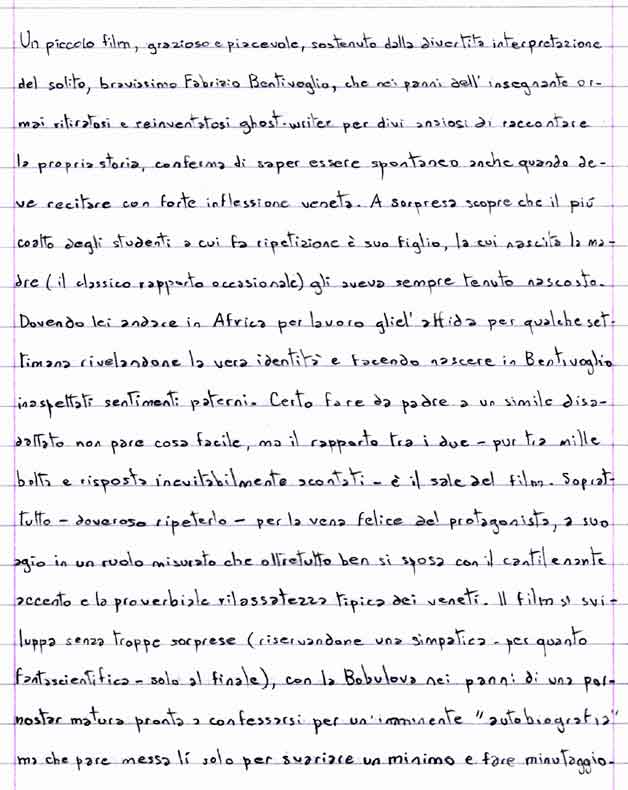 Un piccolo film, grazioso e piacevole, sostenuto dalla divertita interpretazione
del solito, bravissimo Fabrizio Bentivoglio, che nei panni dell'insegnante or-
mai ritiratosi e reinventatosi ghost-writer per divi ansiosi di raccontare
la propria storia, conferma di saper essere spontaneo anche quando de-
ve recitare con forte inflessione veneta. A sorpresa scopre che il più
coatto degli studenti a cui fa ripetizione è suo figlio, la cui nascita la ma-
dre (il classico rapporto occasionale) gli aveva sempre tenuto nascosto.
Dovendo lei andare in Africa per lavoro gliel'affida per qualche set-
timana rivelandone la vera identità e facendo nascere in Bentivoglio
inaspettati sentimenti paterni. Certo fare da padre a un simile disa-
dattato non pare cosa facile, ma il rapporto tra i due - pur tra mille
botta e risposta inevitabilmente scontati - è il sale del film. Soprat-
tutto - doveroso ripeterlo - per la vena felice del protagonista, a suo
agio in un ruolo misurato che oltretutto ben si sposa con il cantilenante
accento e la proverbiale rilassatezza tipica dei veneti. Il film si svi-
luppa senza troppe sorprese (riservandone una simpatica - per quanto
fantascientifica - solo al finale), con la Bobulova nei panni di una por-
nostar matura pronta a confessarsi per un'imminente "autobiografia"
ma che pare messa lí solo per svariare un minimo e fare minutaggio.